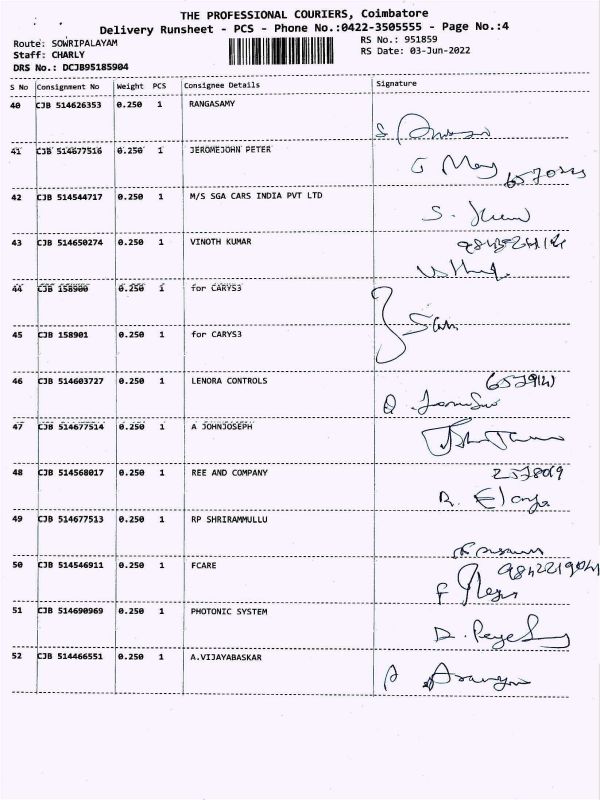 THE PROFESSIONAL COURIERS, Coimbatore
Delivery Runsheet - PCS - Phone No.:0422-3505555 - Page No.:4
Route: SOWRIPALAYAM RS No.: 951859
Staff: CHARLY RS Date: 03-Jun-2022
DRS No.: DCJB95185904
S No Consignment No Weight PCS Consignee Details Signature
40 CJB 514626353 0.250 1 RANGASAMY
41 CJB 514677516 0.250 1 JEROMEJOHN PETER
42 CJB 514544717 0.250 1 M/S SGA CARS INDIA PVT LTD
43 CJB 514650274 0.250 1 VINOTH KUMAR
44 CJB 158900 0.250 1 for CARYS3
45 CJB 158901 0.250 1 for CARYS3
46 CJB 514603727 0.250 1 LENORA CONTROLS
47 CJB 514677514 0.250 1 A JOHNJOSEPH
48 CJB 514568017 0.250 1 REE AND COMPANY
49 CJB 514677513 0.250 1 RP SHRIRAMMULLU
50 CJB 514546911 0.250 1 FCARE
51 CJB 514690969 0.250 1 PHOTONIC SYSTEM
52 CJB 514466551 0.250 1 A.VIJAYABASKAR